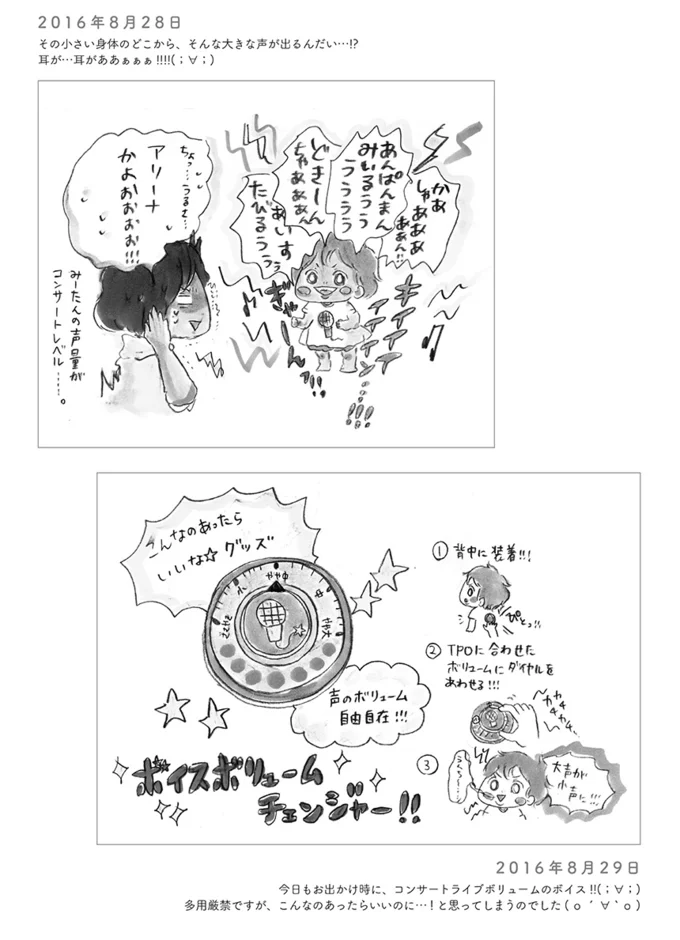 2016年8月28日
その小さい身体のどこから、そんな大きな声が出るんだい…!?
耳が…耳がああぁぁぁ!!!!(；∀；)
かあ
しゃあああ
ああん!!
あんぱんまん
みぃるうう
うううう
どきーん
ちゃあああん
あいすぅ
たびるうぅぅ
キイイイ
イイイイン……!!!
ぎゃーんっ!!
ちょっ…うるせ…
アリーナ
かよおおおお!!!
みーたんの声量が
コンサートレベル……。
こんなのあったら
いいな☆グッズ
小
やや中
中
特大
声のボリューム
自由自在!!!
ボイスボリューム
チェンジャー!!
① 背中に装着!!!
ぴとっ!!
② TPOに合わせた
ボリュームにダイヤルを
あわせる!!!
カチカチカチ
③
大声が
小声に!!!
2016年8月29日
今日もお出かけ時に、コンサートライブボリュームのボイス!!(；∀；)
多用厳禁ですが、こんなのあったらいいのに…！と思ってしまうのでした(ｏ´∀｀ｏ)